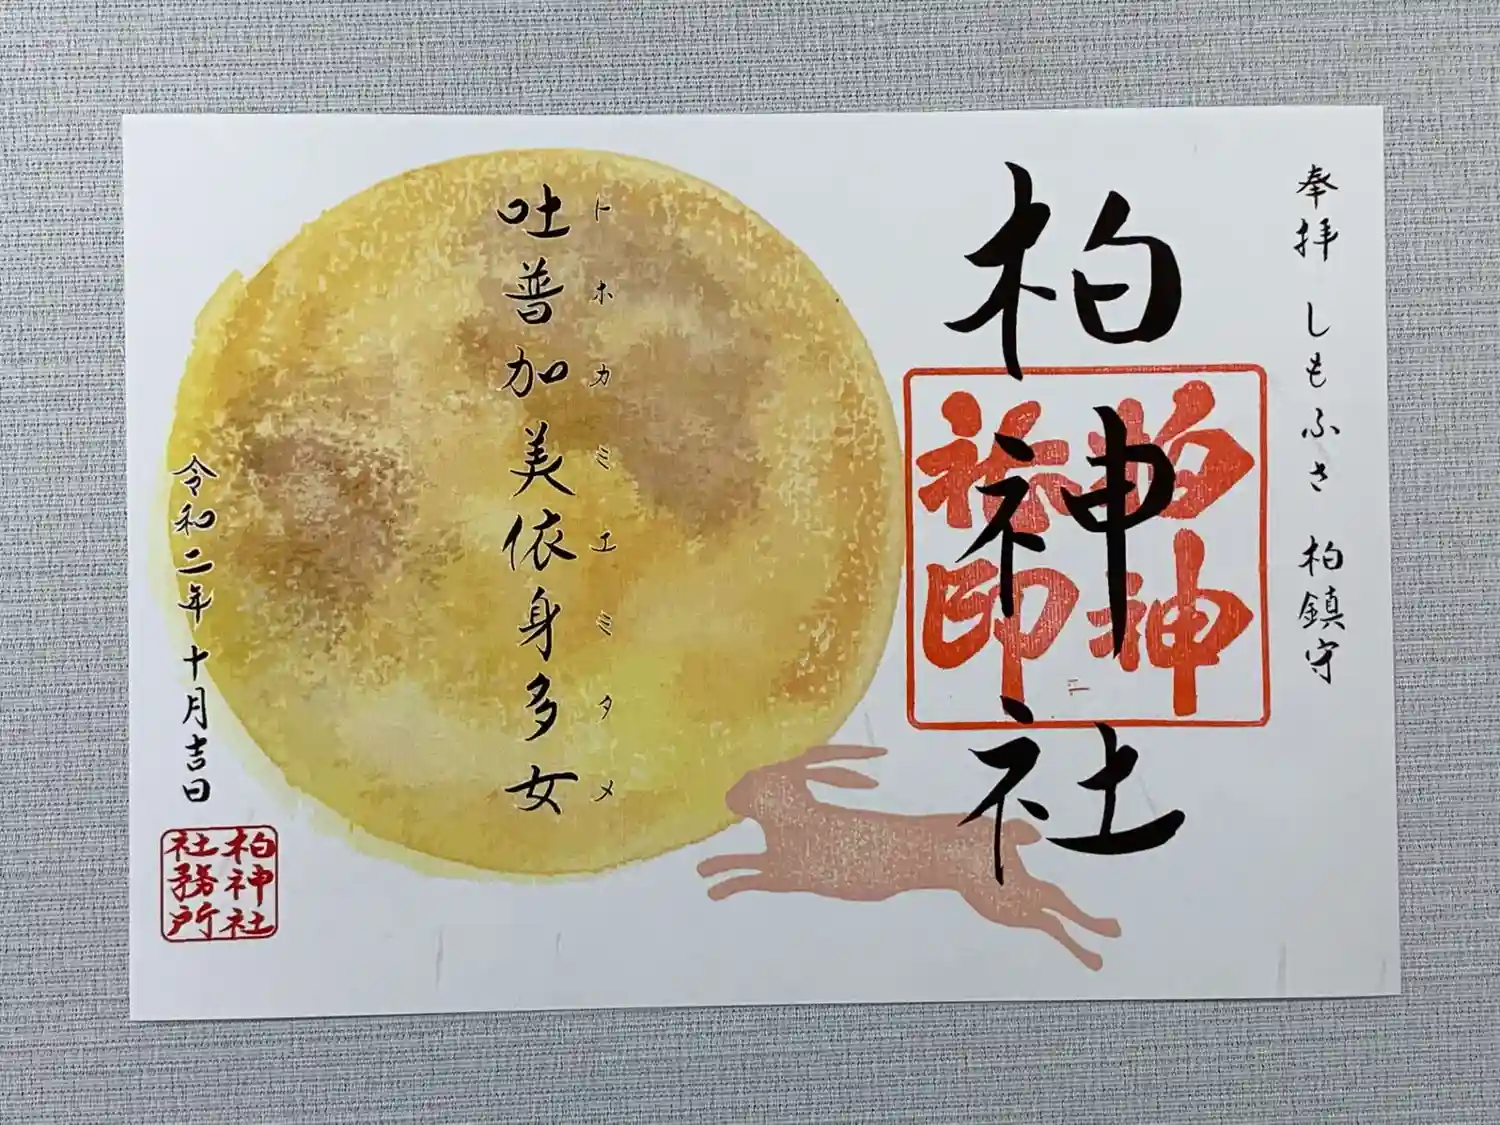 奉拝 しもふさ 柏鎮守
柏神社
柏神
社印
トホカミエミタメ
吐普加美依身多女
令和二年 十月吉日
柏神社
社務所